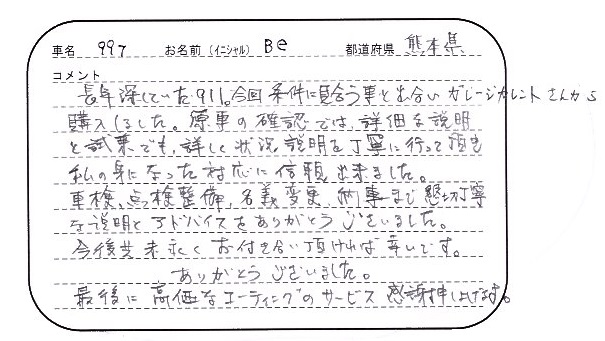 車名 997 お名前(イニシャル) Be 都道府県 熊本県
コメント
長年探していた911。今回条件に見合う車と出合いガレージカレントさんから
購入しました。原車の確認では、詳細な説明
と試乗でも、詳しく状況説明を丁寧に行って頂き
私の身になった対応に信頼出来ました。
車検、点検整備、名義変更、納車まで懇切丁寧
な説明とアドバイスをありがとうございました。
今後共末永くお付き合い頂ければ幸いです。
ありがとうございました。
最後に高価なコーティングのサービス感謝申し上げます。